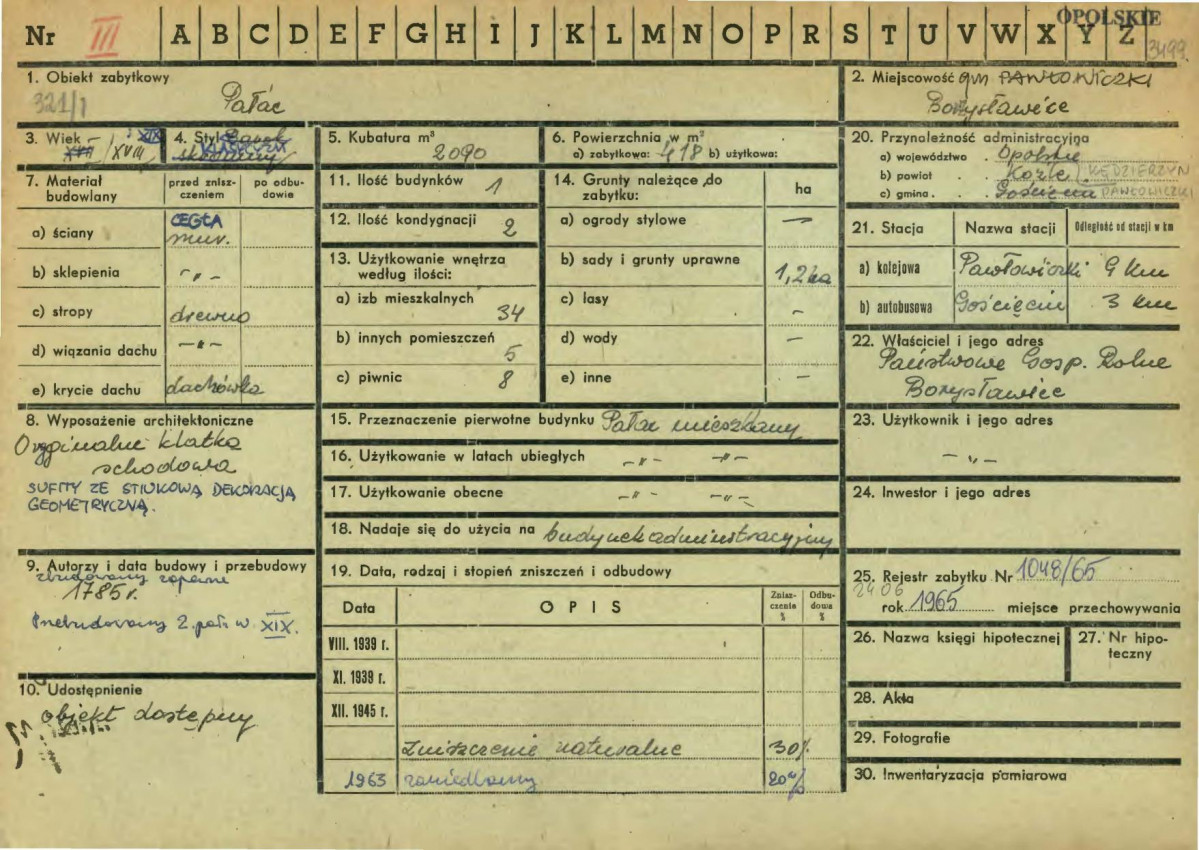 OPOLSKIE
Nr III A B C D E F G H I J K L M N O P R S T U V W X Y Z
3499
1. Obiekt zabytkowy
321/1 Pałac
2. Miejscowość gm PAWŁOWICZKI
Borzysławice
3. Wiek XVII / XVIII XIX
4. Styl Barok
KLASYCYZM
5. Kubatura m³
2090
6. Powierzchnia w m²
a) zabytkowa: 418 b) użytkowa:
20. Przynależność administracyjna
a) województwo . Opolskie
b) powiat . . Koźle KĘDZIERZYN
c) gmina . . Gościęcin PAWŁOWICZKI
7. Materiał budowlany
przed zniszczeniem
po odbudowie
a) ściany CEGŁA
mur.
b) sklepienia -"-
c) stropy drewno
d) wiązania dachu -"-
e) krycie dachu dachówka
11. Ilość budynków 1
12. Ilość kondygnacji 2
13. Użytkowanie wnętrza
według ilości:
a) izb mieszkalnych 34
b) innych pomieszczeń 5
c) piwnic 8
14. Grunty należące do
zabytku: ha
a) ogrody stylowe —
b) sady i grunty uprawne 1,2 ha
c) lasy –
d) wody —
e) inne —
21. Stacja Nazwa stacji Odległość od stacji w km
a) kolejowa Pawłowiczki 9 km
b) autobusowa Gościęcin 3 km
22. Właściciel i jego adres
Państwowe Gosp. Rolne
Borzysławiec
8. Wyposażenie architektoniczne
Oryginalne klatka
schodowa
SUFITY ZE STIUKOWĄ DEKORACJĄ
GEOMETRYCZNĄ.
15. Przeznaczenie pierwotne budynku Pałac mieszkany
16. Użytkowanie w latach ubiegłych -"- -"-
17. Użytkowanie obecne -"- -"-
18. Nadaje się do użycia na budynek administracyjny
23. Użytkownik i jego adres
-"-
24. Inwestor i jego adres
9. Autorzy i data budowy i przebudowy
zbudowany zapewne
1785 r.
Przebudowany 2. poł. w. XIX.
19. Data, rodzaj i stopień zniszczeń i odbudowy
Data OPIS Zniszczenie % Odbudowa %
VIII. 1939 r.
XI. 1939 r.
XII. 1945 r.
Zniszczenie naturalne 30%
1963 zaniedbany 20%
25. Rejestr zabytku Nr 1048/65
24 06
rok 1965 miejsce przechowywania
26. Nazwa księgi hipotecznej
27. Nr hipoteczny
28. Akta
29. Fotografie
30. Inwentaryzacja pomiarowa
10. Udostępnienie
objekt dostępny